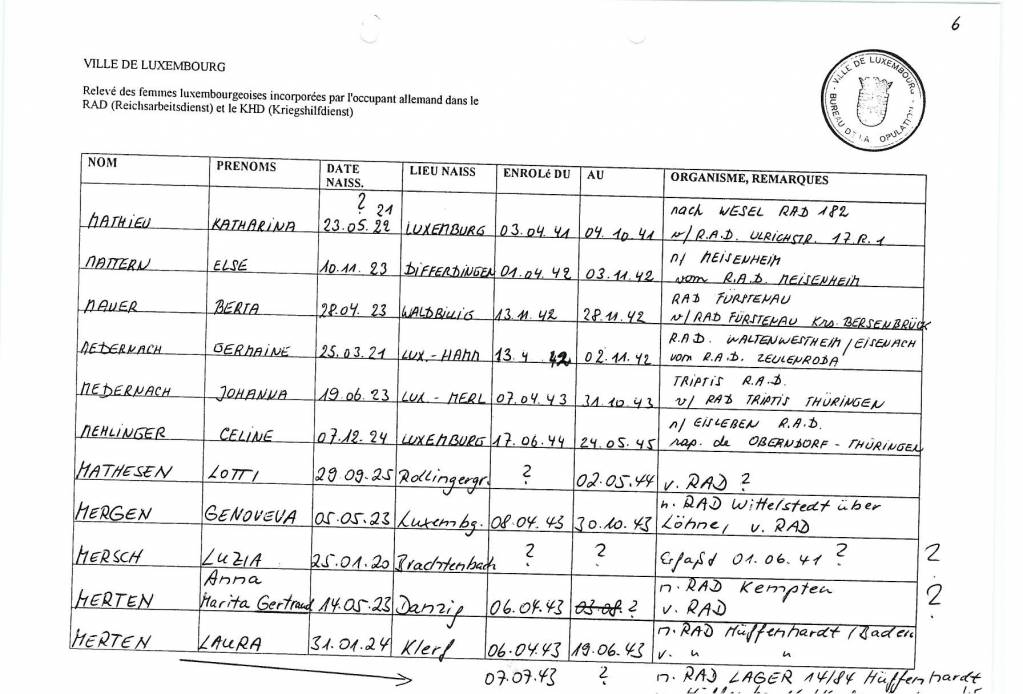 6
VILLE DE LUXEMBOURG
Relevé des femmes luxembourgeoises incorporées par l'occupant allemand dans le
RAD (Reichsarbeitsdienst) et le KHD (Kriegshilfdienst)
VILLE DE LUXEMBOURG
BUREAU DE LA OPULATION
NOM PRENOMS DATE NAISS. LIEU NAISS ENROLé DU AU ORGANISME, REMARQUES
? 21 nach WESEL RAD 182
MATHIEU KATHARINA 23.05.22 LUXEMBURG 03.04.41 04.10.41 v/R.A.D. ULRICHSTR. 17 R.1
n/ MEISENHEIM
MATTERN ELSE 10.11.23 DIFFERDINGEN 01.04.42 03.11.42 vom R.A.D. MEISENHEIM
RAD FÜRSTENAU
MAUER BERTA 28.04.23 WALDBILLIG 13.11.42 28.11.42 v/RAD FÜRSTENAU Krs. BERSENBRÜCK
R.A.D. WALTENWESTHEIM/EISENACH
MEDERNACH GERMAINE 25.03.21 LUX.-HAMM 13.4 42 02.11.42 vom R.A.D. ZEULENRODA
TRIPTIS R.A.D.
MEDERNACH JOHANNA 19.06.23 LUX-MERL 07.04.43 31.10.43 v/ RAD TRIPTIS THÜRINGEN
n/EISLEBEN R.A.D.
MEHLINGER CELINE 07.12.24 LUXEMBURG 17.06.44 24.05.45 rap. de OBERNDORF-THÜRINGEN
MATHESEN LOTTI 29.09.25 Rollingergr. ? 02.05.44 v. RAD ?
n. RAD Wittelstedt über
MERGEN GENOVEVA 05.05.23 Luxembg. 08.04.43 30.10.43 Löhne, v. RAD
MERSCH LUZIA 25.01.20 Brachtenbach ? ? Erfaßt 01.06.41 ? ?
Anna n. RAD Kempten
MERTEN Marita Gertraud 14.05.23 Danzig 06.04.43 03.08. ? v. RAD ?
n. RAD Hüffenhardt/Baden
MERTEN LAURA 31.01.24 Klerf 06.04.43 19.06.43 v. " "
07.07.43 ? n. RAD LAGER 14/84 Hüffenhardt